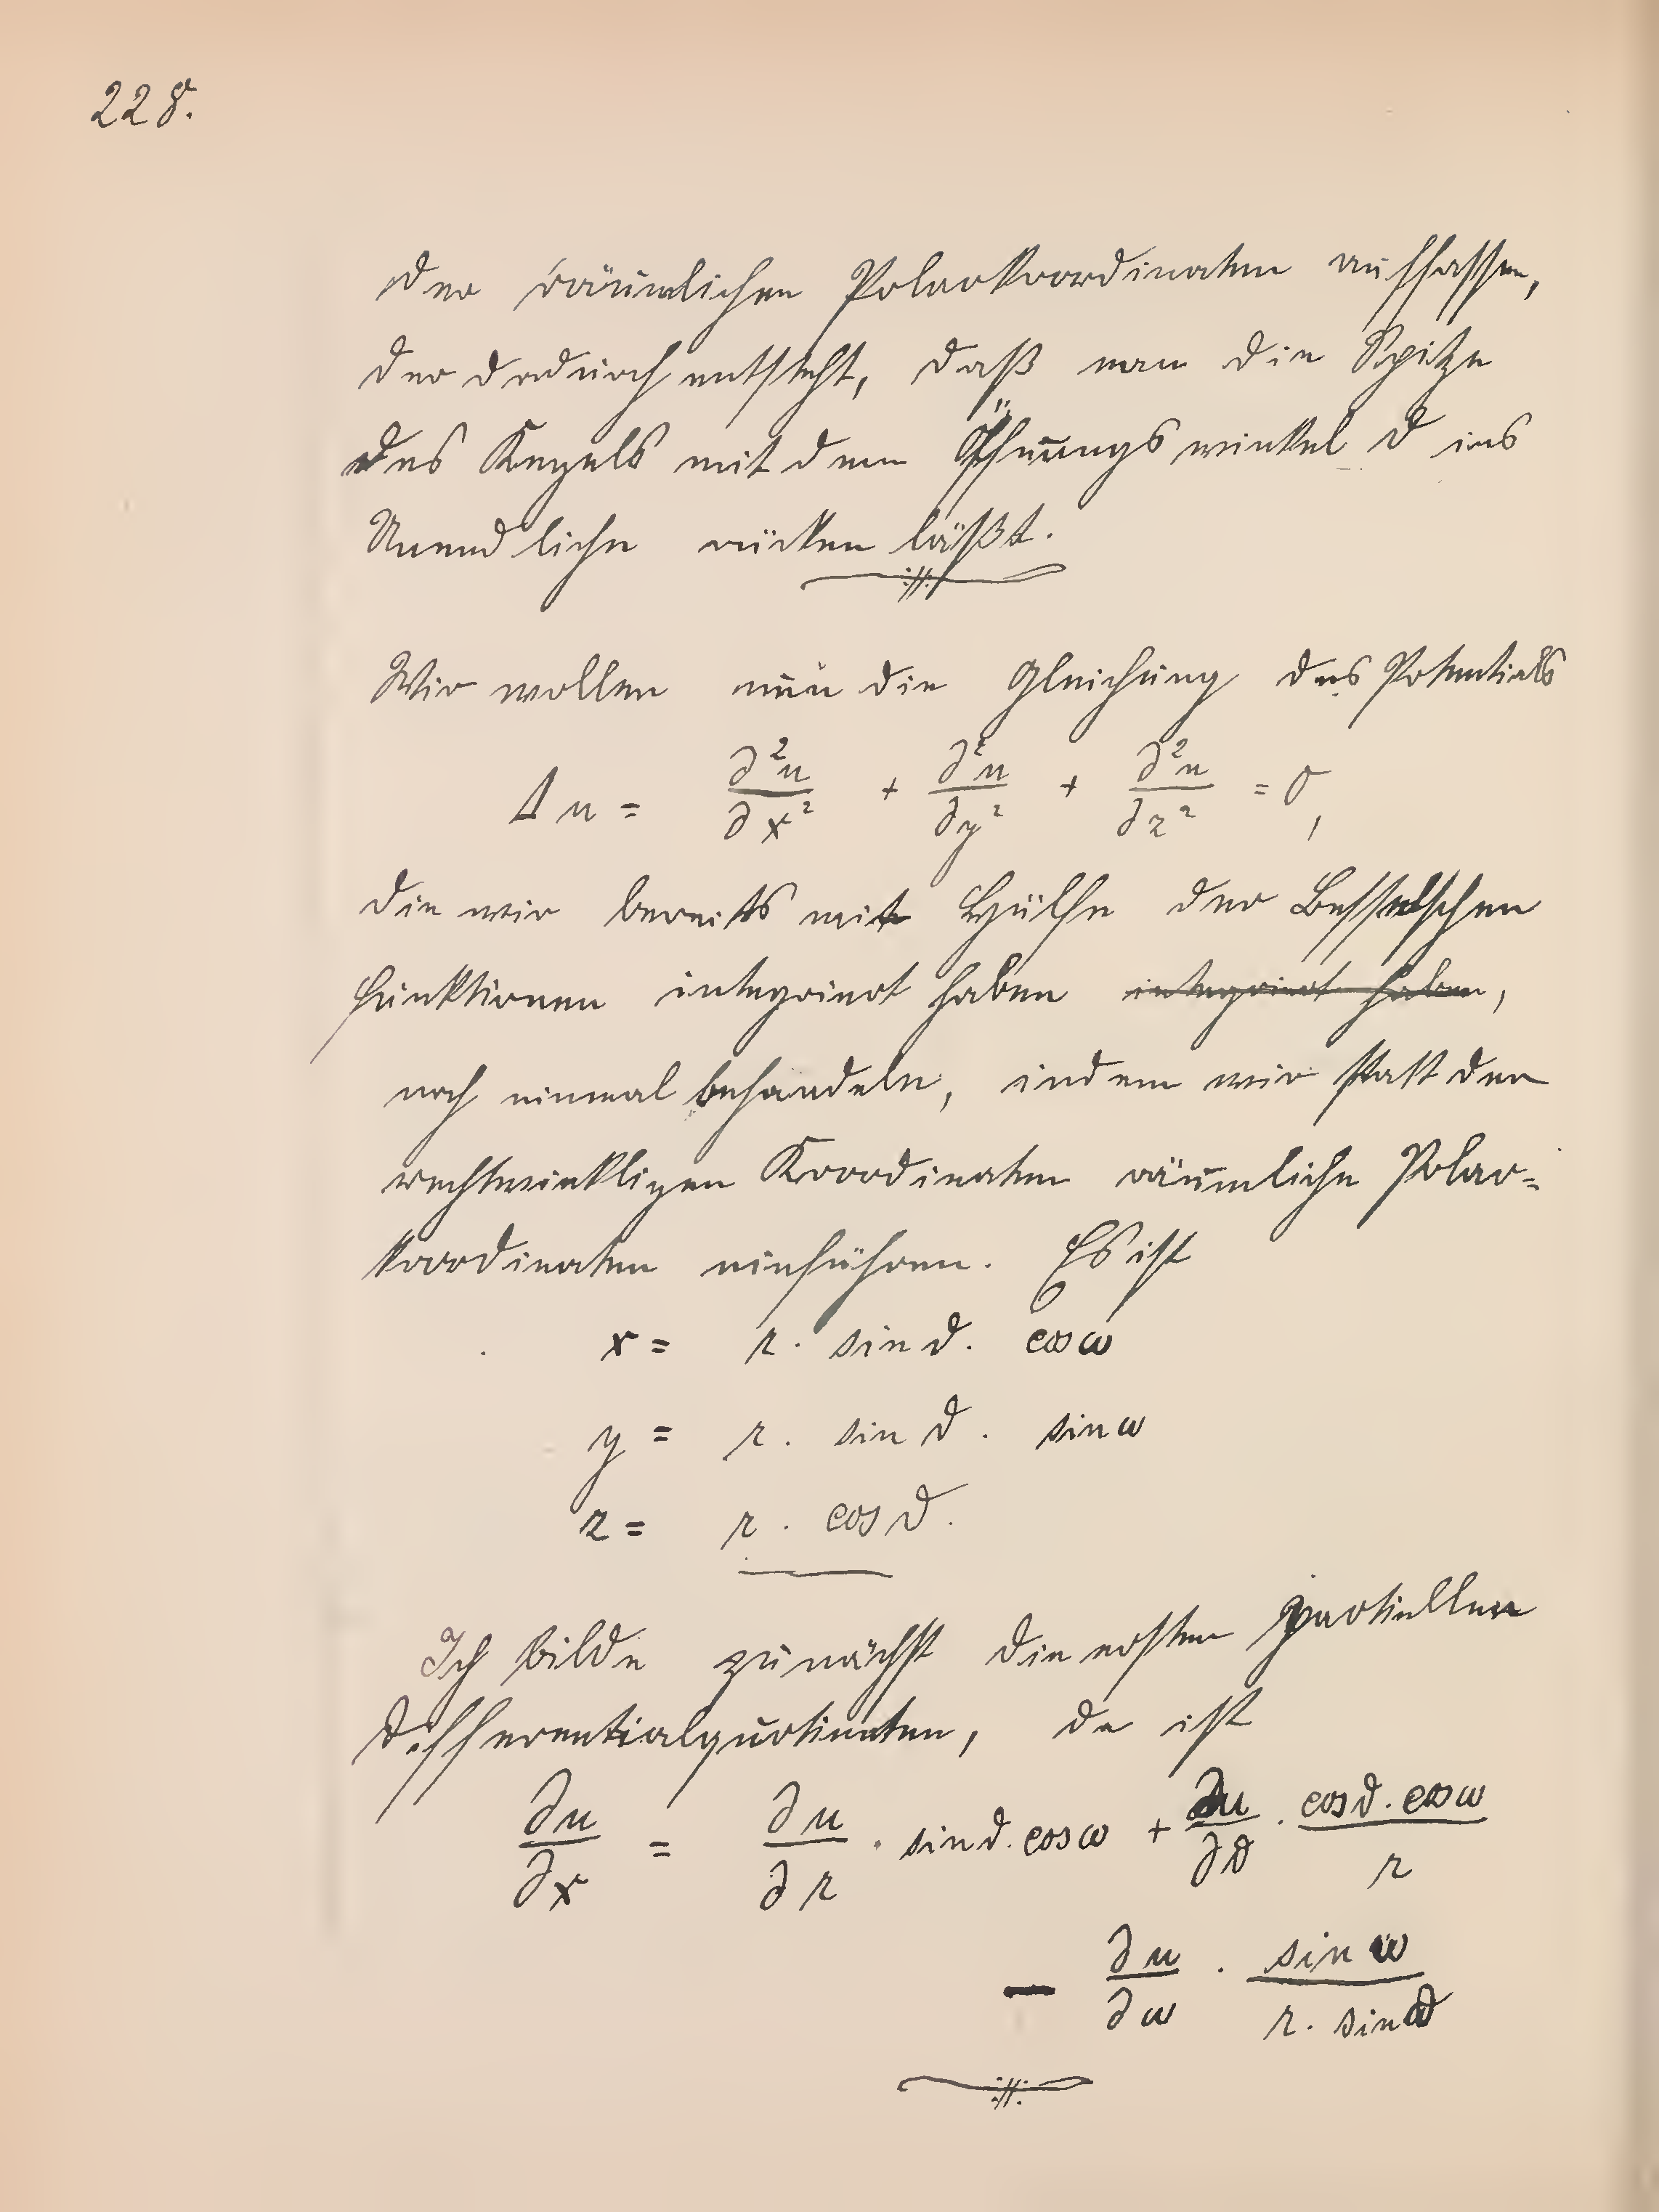 228.
der räumlichen Polarkoordinaten auffassen,
der dadurch entsteht, daß man die Spitze
des Kegels mit dem Öffnungswinkel ϑ ins
Unendliche rücken läßt.
Wir wollen nun die Gleichung des Potentials
Δu = ∂²u/∂x² + ∂²u/∂y² + ∂²u/∂z² = 0,
die wir bereits mit Hülfe der Besselschen
Funktionen integriert haben integriert haben,
noch einmal behandeln, indem wir statt der
rechtwinkligen Koordinaten räumliche Polar=
koordinaten einführen. Es ist
x = r · sin ϑ. cos ω
y = r . sin ϑ . sin ω
z = r . cos ϑ.
Ich bilde zunächst die ersten partiellen
Differentialquotienten, da ist
∂u/∂x = ∂u/∂r · sin ϑ. cos ω + ∂u/∂ϑ · cos ϑ. cos ω/r
− ∂u/∂ω · sin ω/r. sin ϑ